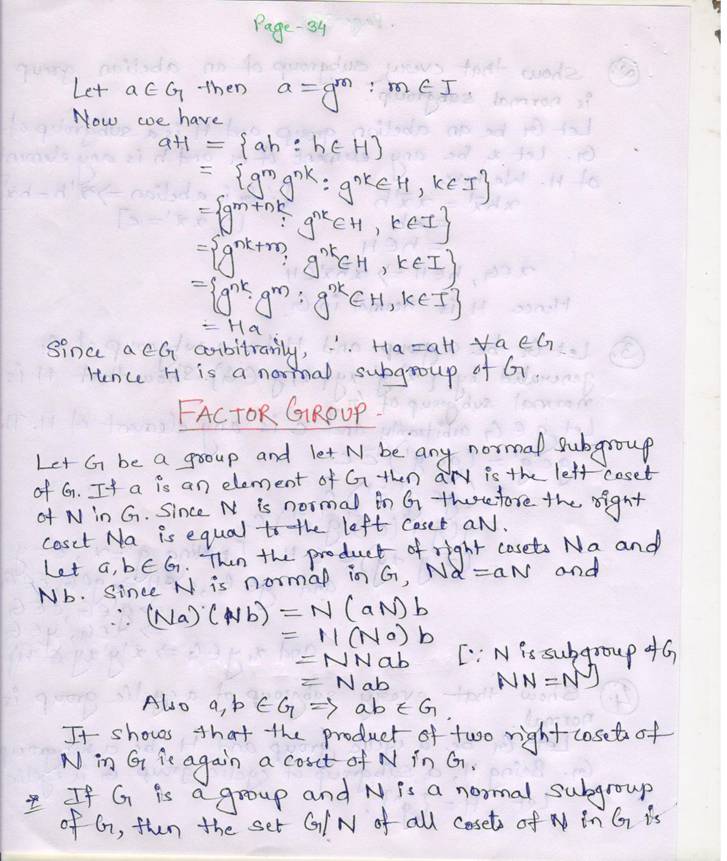 Page-34
Let a∈G then a = gᵐ : m ∈ I.
Now we have
aH = {ah : h∈H}
= {gᵐ gⁿᵏ : gⁿᵏ∈H, k∈I}
= {gᵐ⁺ⁿᵏ : gⁿᵏ∈H, k∈I}
= {gⁿᵏ⁺ᵐ : gⁿᵏ∈H, k∈I}
= {gⁿᵏ. gᵐ : gⁿᵏ∈H, k∈I}
= Ha
Since a∈G arbitrarily, ∴ Ha = aH ∀a ∈G
Hence H is a normal subgroup of G.
FACTOR GROUP-
Let G be a group and let N be any normal subgroup
of G. If a is an element of G then aN is the left coset
of N in G. Since N is normal in G therefore the right
coset Na is equal to the left coset aN.
Let a,b∈G. Then the product of right cosets Na and
Nb. Since N is normal in G, Na = aN and
∴ (Na)(Nb) = N(aN)b
= N(Na)b
= NNab [∵ N is subgroup of G
= Nab NN=N]
Also a,b ∈G => ab ∈ G.
It shows that the product of two right cosets of
N in G is again a coset of N in G.
* If G is a group and N is a normal subgroup
of G, then the set G/N of all cosets of N in G is